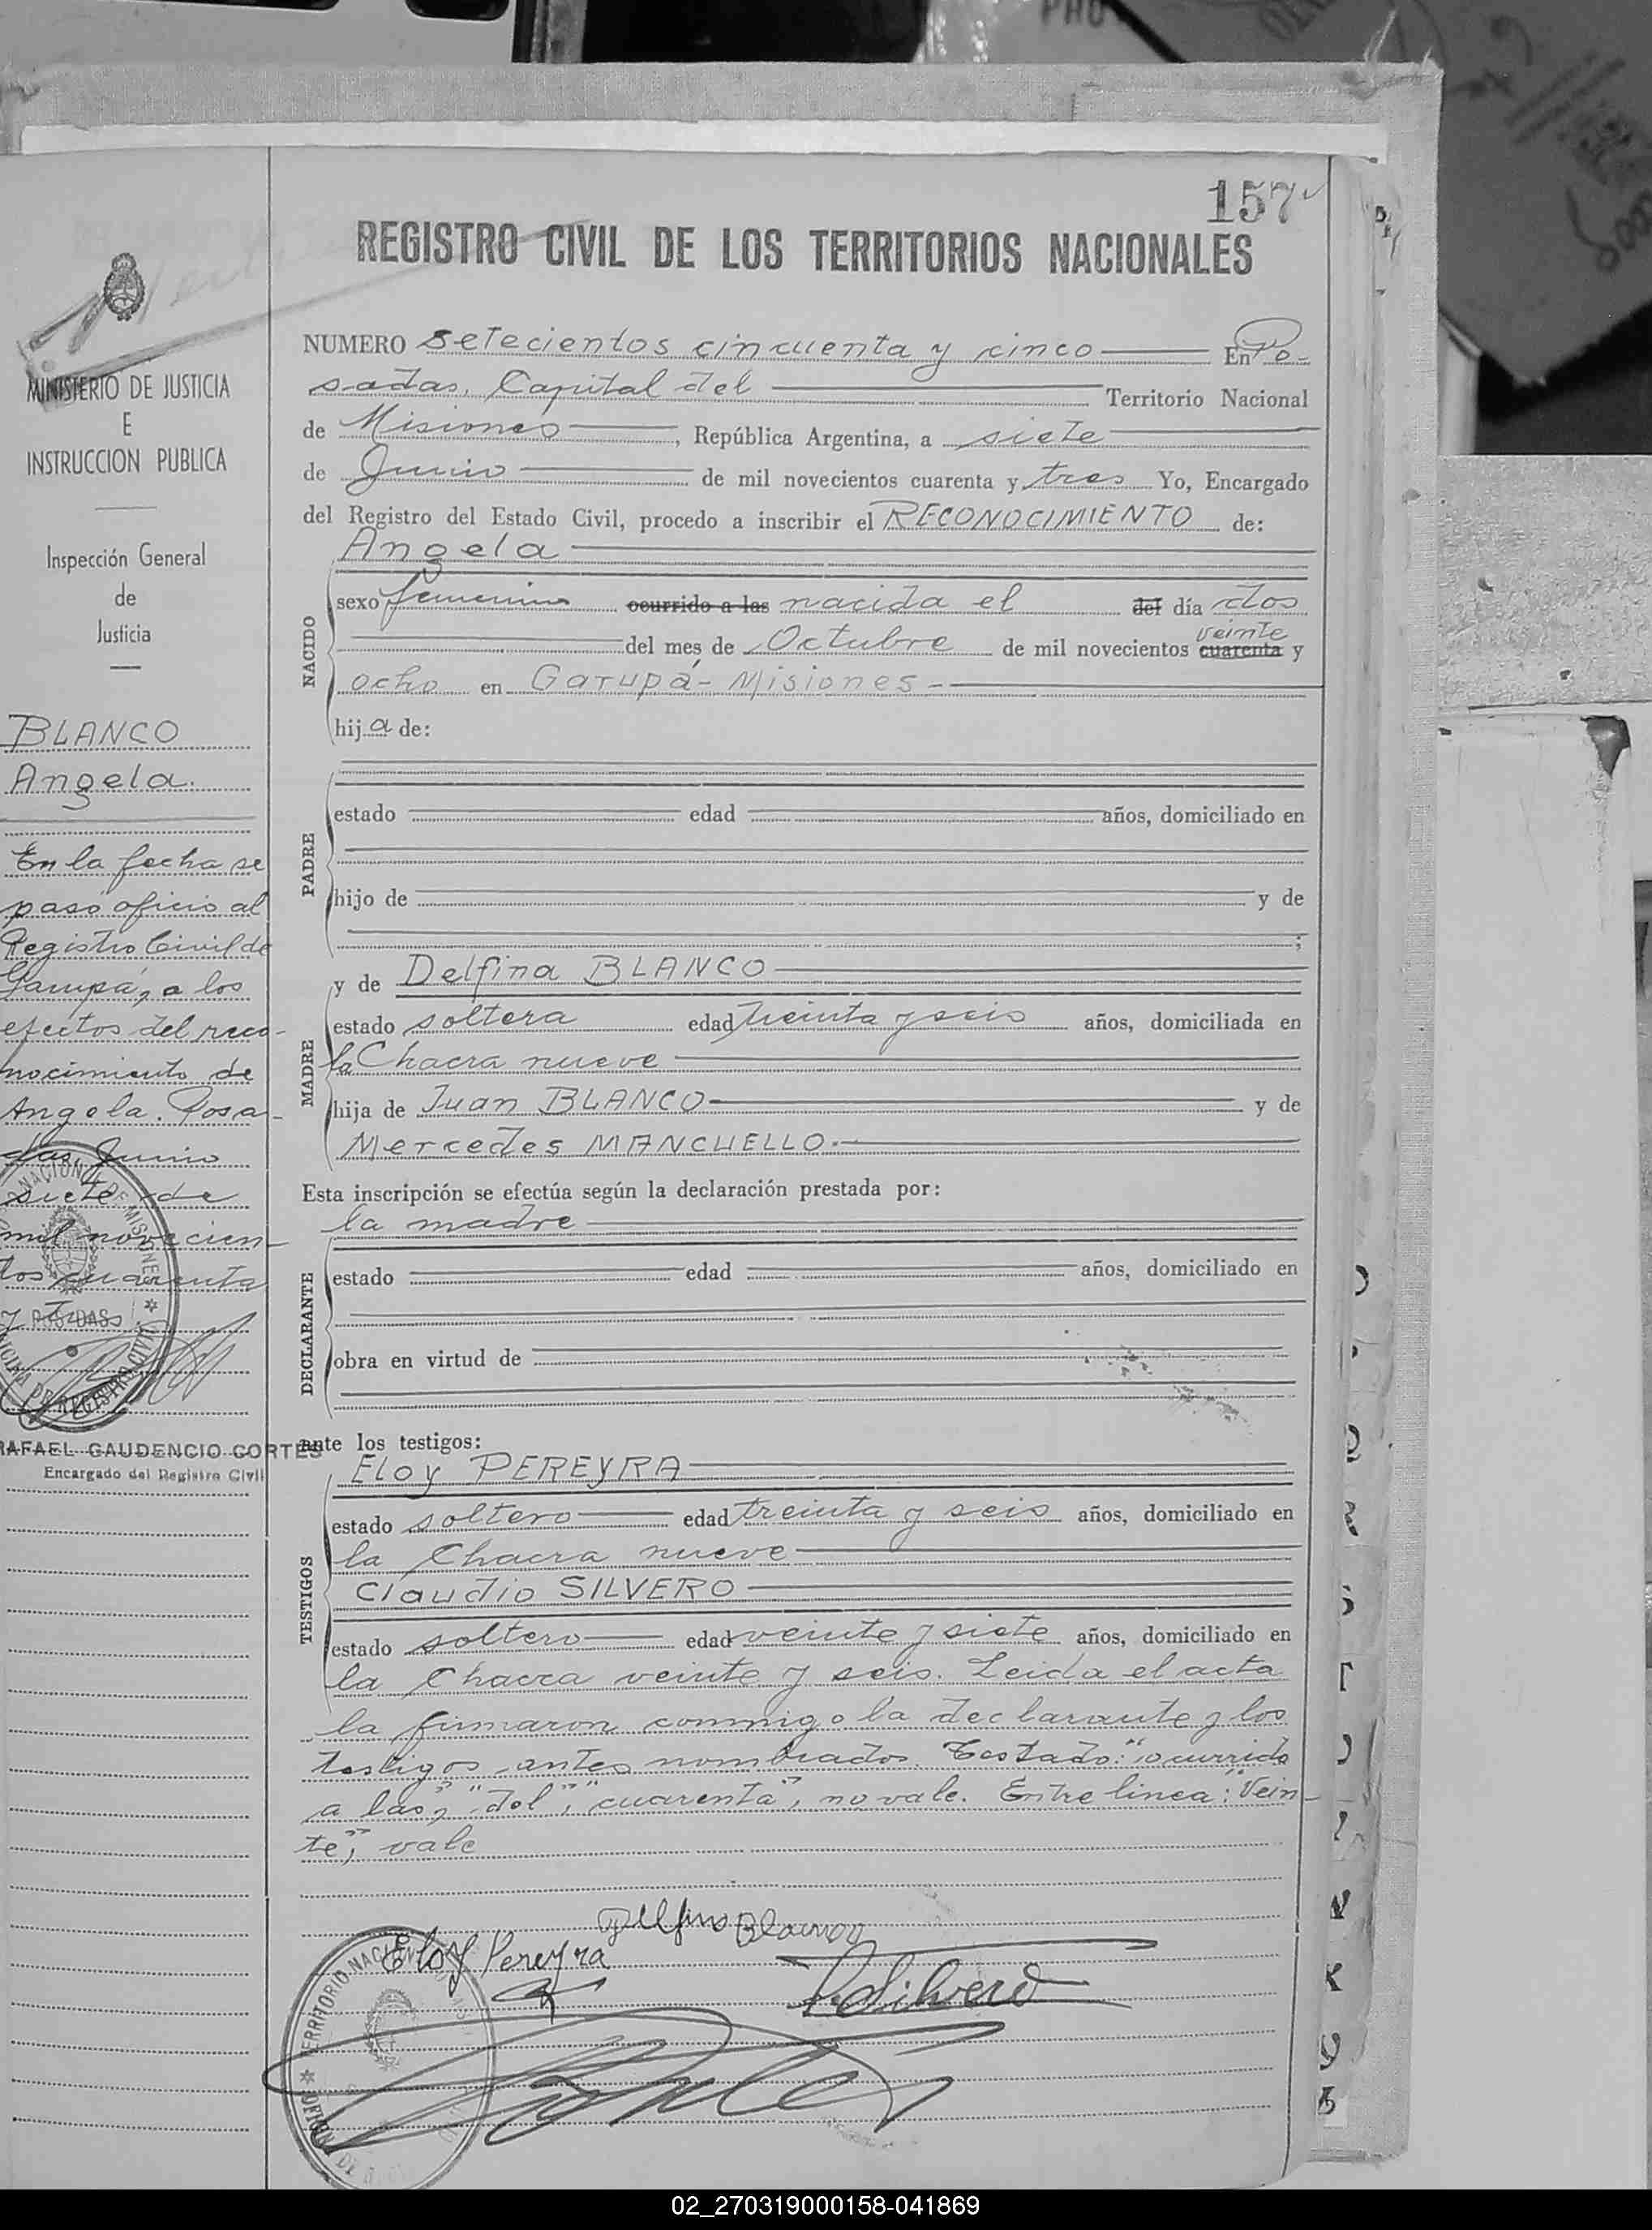 157
REGISTRO CIVIL DE LOS TERRITORIOS NACIONALES
MINISTERIO DE JUSTICIA
E
INSTRUCCION PUBLICA
Inspección General
de
Justicia
BLANCO
Angela.
En la fecha se
pasó oficio al
Registro Civil de
Garupá, a los
efectos del reco-
nocimiento de
Angela. Posa-
das, Junio
siete de
mil novecien-
tos cuarenta
y tres
RAFAEL GAUDENCIO CORTES
Encargado del Registro Civil
NUMERO setecientos cincuenta y cinco En Po-
sadas, Capital del Territorio Nacional
de Misiones, República Argentina, a siete
de Junio de mil novecientos cuarenta y tres Yo, Encargado
del Registro del Estado Civil, procedo a inscribir el RECONOCIMIENTO de:
Angela
NACIDO
sexo femenino ocurrido a las nacida el del día dos
del mes de Octubre de mil novecientos cuarenta veinte y
ocho en Garupá - Misiones -
hija de:
PADRE
estado edad años, domiciliado en
hijo de y de
;
MADRE
y de Delfina BLANCO
estado soltera edad treinta y seis años, domiciliada en
la Chacra nueve
hija de Juan BLANCO y de
Mercedes MANCUELLO.
Esta inscripción se efectúa según la declaración prestada por:
la madre
DECLARANTE
estado edad años, domiciliado en
obra en virtud de
ante los testigos:
TESTIGOS
Eloy PEREYRA
estado soltero edad treinta y seis años, domiciliado en
la Chacra nueve
Claudio SILVERO
estado soltero edad veinte y siete años, domiciliado en
la Chacra veinte y seis. Leida el acta
la firmaron conmigo la declarante y los
testigos antes nombrados. Testado: "ocurrido
a las", "del", "cuarenta", no vale. Entre linea: "Vein-
te", vale
Delfina Blanco
Eloy Pereyra
Silvero
TERRITORIO NACIONAL
02_270319000158-041869